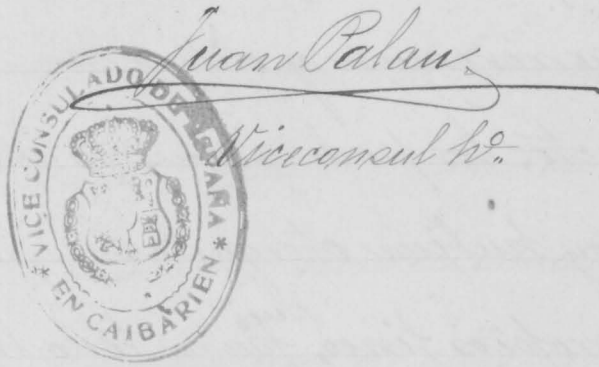 Juan Palau
Viceconsul hº.
* VICE CONSULADO DE ESPAÑA *
EN CAIBARIEN